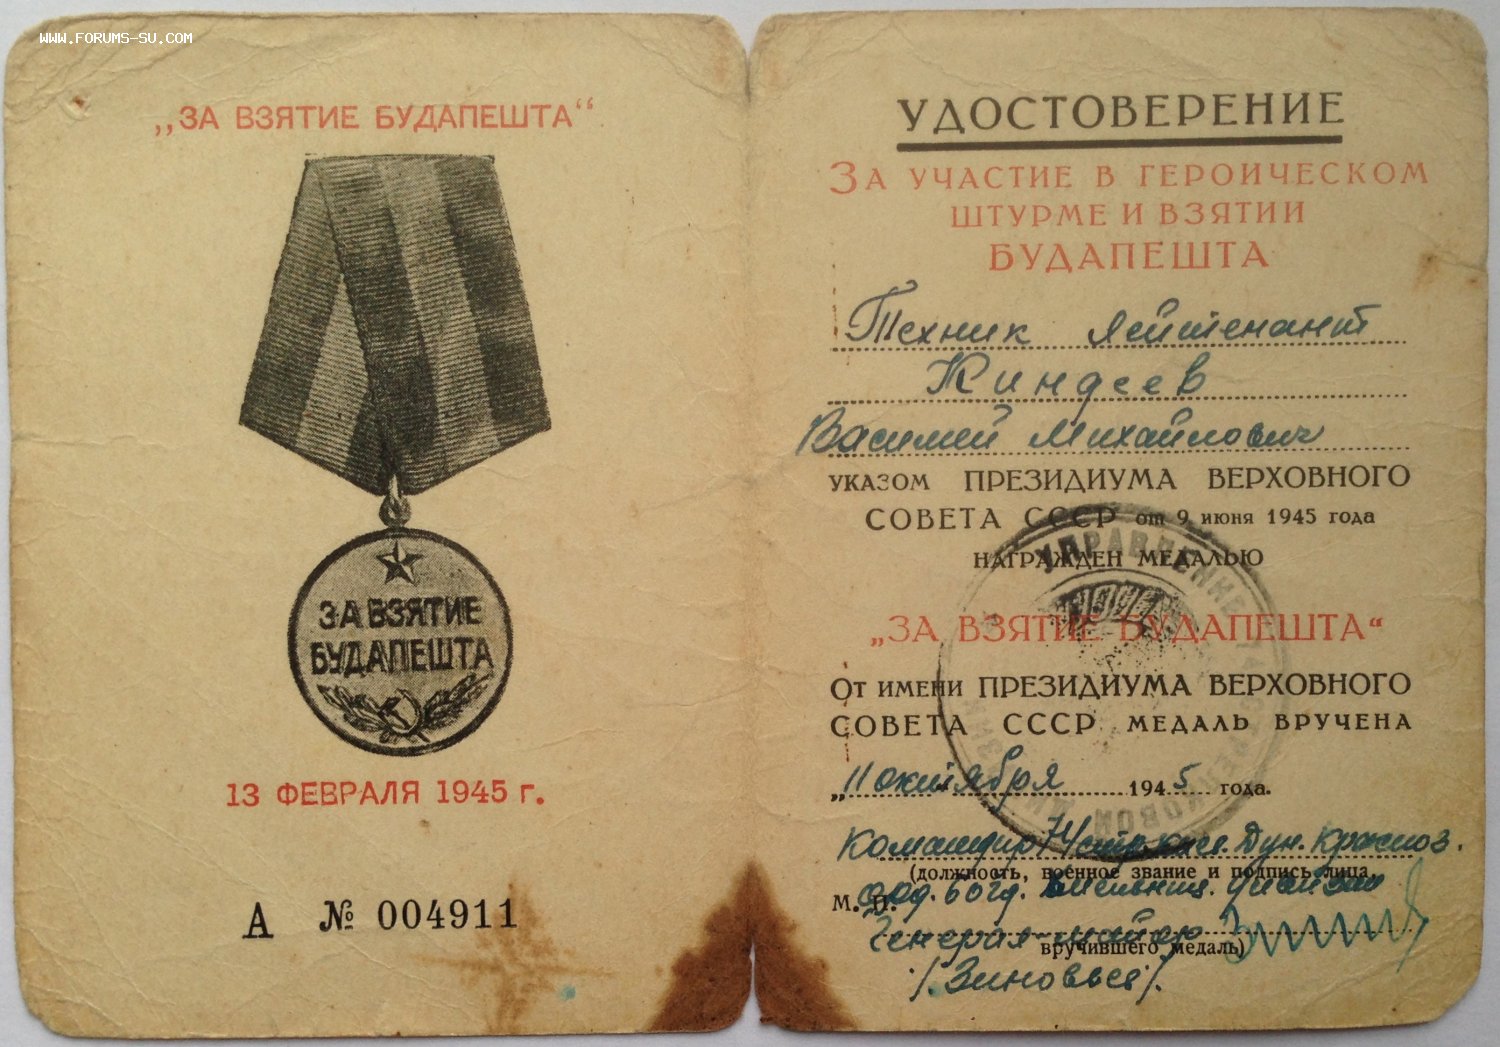 WWW.FORUMS-SU.COM
„ЗА ВЗЯТИЕ БУДАПЕШТА“
ЗА ВЗЯТИЕ
БУДАПЕШТА
13 ФЕВРАЛЯ 1945 г.
А № 004911
УДОСТОВЕРЕНИЕ
ЗА УЧАСТИЕ В ГЕРОИЧЕСКОМ
ШТУРМЕ И ВЗЯТИИ
БУДАПЕШТА
Техник лейтенант
Киндеев
Василий Михайлович
УКАЗОМ ПРЕЗИДИУМА ВЕРХОВНОГО
СОВЕТА СССР от 9 июня 1945 года
НАГРАЖДЕН МЕДАЛЬЮ
„ЗА ВЗЯТИЕ БУДАПЕШТА“
ОТ ИМЕНИ ПРЕЗИДИУМА ВЕРХОВНОГО
СОВЕТА СССР МЕДАЛЬ ВРУЧЕНА
„11 октября 1945 года.
УПРАВЛЕНИЕ
Командир Дун. Краснoз.
(должность, военное звание и подпись лица,
М. П.
Генерал-майор
вручившего медаль)
/Зиновьев/.